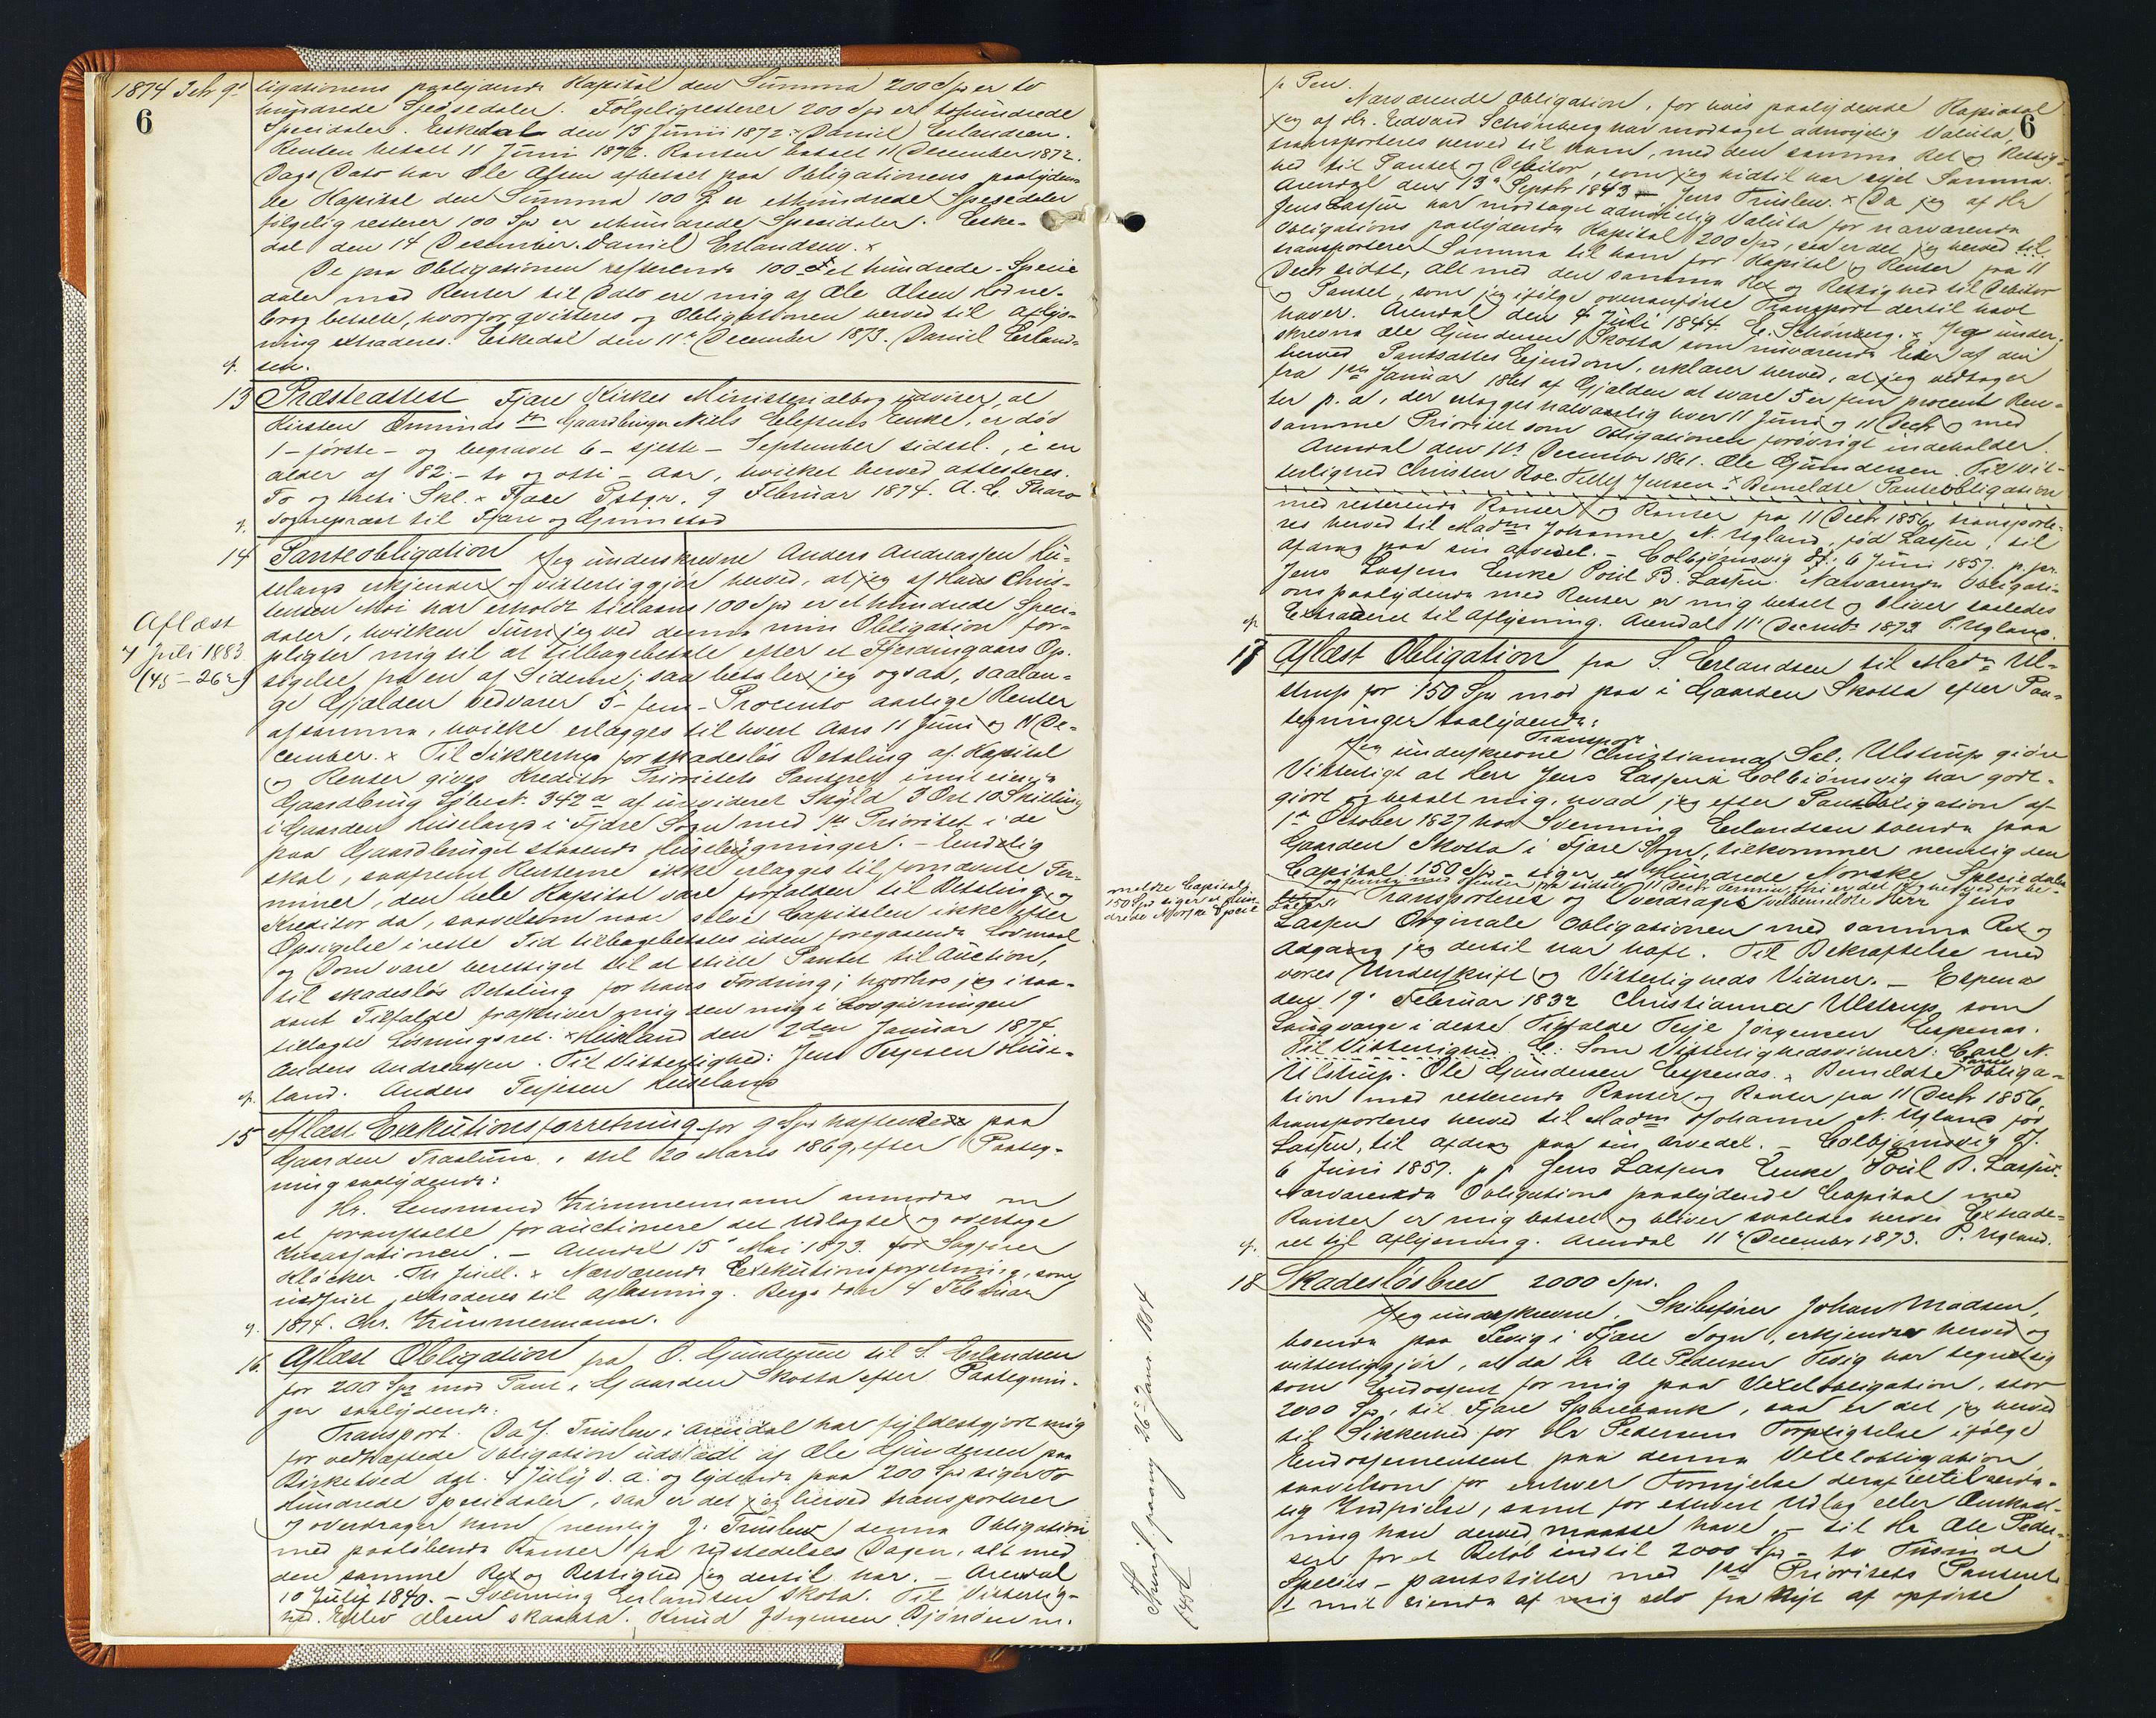 1874 Feb 9de
6
ligationens paalydende Kapital den Summa 200 Spd er to
hundrede Spesiedaler. Følgelig resterer 200 Spd er tohundrede
Specidaler. Eskedal den 15 Juni 1872. Daniel Erlandsen.
Renten betalt 11 Juni 1872. Renten betalt 11 December 1872.
Dags Dato har Ole Olsen afbetalt paa Obligationens paalyden-
de Kapital den Summa 100 Spd er ethundrede Spesedaler
følgelig resterer 100 Spd er ethundrede Spesidaler. Eske-
dal den 14 Desember. Daniel Erlandsen. x
De paa Obligationen resterende 100 et hundrede Specie
daler med Renter til Dato ere mig af Ole Olsen Rødne-
brog betalte, hvorfor qvitteres og Obligationen herved til Aflys-
ning extraderes. Eskedal den 11te December 1873. Daniel Erland-
sen.
13 Præsteattest Fjære Kirkes Ministerialbog udviser, at
Kirsten Omunds dtr Gaardbruger Niels Elefsens Enke, er død
1 - første - og begravet 6 - sjette - September sidstl., i en
alder af 82 - to og otti - Aar, hvilket herved attesteres.
To og treti Skl. x Fjære Pstgrd. 9 Februar 1874. A. C. Tharo
Sognepræst til Fjære og Grimstad
14 Panteobligation Jeg underskrevne Anders Andreassen Hu-
seland erkjender og vitterliggjør herved, at jeg af Hans Chris-
tensen Moi har erholdt tillaans 100 Spd er et hundrede Speci-
daler, hvilken Sum jeg ved denne min Obligation for-
pligter mig til at tilbagebetale efter et Fjerdingaars Op-
sigelse fra en af Siderne; saa betaler jeg ogsaa, saalæn-
ge Gjælden vedvarer 5 - fem - Procento aarlige Renter
af samme, hvilke erlægges til hvert Aars 11 Juni og 11 De-
cember. x Til Sikkerhed for skadesløs Betaling af Kapital
og Renter gives Kreditor Prioritets Panteret i mit eiende
Gaardbrug Løbe Nr. 342a af urevideret Skyld 3 Ort 10 Skilling
i Gaarden Huseland i Fjære Sogn med 1ste Prioritet i de
paa Gaardbruget staaende Husebygninger. - Endelig
skal, saafremt Renterne ikke erlægges til fornævnte Ter-
miner, den hele Kapital være forfalden til Betaling, og
Kreditor da, saavelsom naar selve Capitalen ikke efter
Opsigelse i rette Tid tilbagebetales uden foregaaende Lovmaal
og Dom være berettiget til at stille Pantet til Auction,
til skadesløs Betaling for hans Fordring; hvorhos jeg i saa-
dant Tilfælde fraskriver mig den mig i Lovgivningen
tillagte Løsningsret. x Huseland den 2den Januar 1874.
Anders Andreassen. Til Vitterlighed: Jens Terjesen Huse-
land. Anders Terjesen Huseland
Aflæst
4 Juli 1883
(45 - 262)
15 Aflæst Exekutionsforretning for 9 Spd haftende paa
Gaarden Trælum, thl 20 Marts 1869, efter Paateg-
ning saalydende:
Hr. Lensmand Zimmermann anmodes om
at foranstalte forauctionere det Udlagte og overtage
Incassationen. - Arendal 15de Mai 1873. for Sagfører
Kløcker. x Nærværende Exekutionsforretning, som
indfriet, extraderes til Aflæsning. Berge den 4 Februar
1874. Chr. Zimmermann.
16 Aflæst Obligation fra O. Gundersen til S. Erlandsen
for 200 Spd med Pant i Gaarden Skotta efter Paategnin-
ger saalydende:
Transport. Da J. Truslew i Arendal har fyldestgjort mig
for vedhæftede Obligation udstædt af Ole Gundersen paa
Birketved dat. 4 July d. a. og lydende paa 200 Spd siger to
Hundrede Speciedaler, saa er det jeg herved transporterer
og overdrager ham (nemlig J. Truslew) denne Obligation
med paaløbende Renter fra Udstedelses Dagen, alt med
den samme Ret og Rettighed jeg dertil har. - Arendal
10 July 1840. - Svenning Erlandsen Skotta. Til Vitterlig-
hed. Ellev Olsen Skaatta. Knud Jørgensen Bjønden m.
p. Pen.
6
Nærværende Obligation, for hvis paalydende Kapital
jeg af Hr. Edvard Schönberg har modtaget udnøjelig Valuta,
transporteres herved til ham, med den samme Ret og Rettig-
hed til Pantet og Debitor, som jeg hidtil har ejet Samme.
Arendal den 13de Septbr 1843 - Jens Truslew. x Da jeg af Hr
Jens Lassen har modtaget udnøielig Valuta for nærværende
Obligations paalydende Kapital 200 Spd, saa er det jeg herved til
transporterer Samme til ham for Kapital og Renter fra 11
Decbr sidst, alt med den samme Ret og Rettighed til Debitor
og Pantet, som jeg ifølge ovenanførte Transport dertil have
haver. Arendal den 4 Juli 1844. E. Schönberg. x Jeg under-
skrevne Ole Gundersen Skotta som nuværende Eier af den
herved Pantsattes Eiendom, erklærer herved, at jeg vedtager
fra 1ste Januar 1861 af Gjælden at svare 5 er fem procent Ren-
ter p. a., der erlægges halvaarlig hver 11 Juni og 11 Decbr med
samme Prioritet som Obligationen forøvrigt indeholder.
Arendal den 11te December 1861. Ole Gundersen. Til vit-
terlighed Christen Roe. Tellef Jensen x Bemeldte Panteobligation
med resterende Renter og Renter fra 11 Decbr 1856, transporte-
res herved til Madm Johanne N. Ugland, fød Lassen, til
afdrag paa sin arvedel. - Colbjørnsvig d. 6 Juni 1857. p. pr.
Jens Lassens Enke Poul B. Lassen. Nærværende Obligati-
ons paalydende med Renter er mig betalt og bliver saaledes
Extraderet til Aflysning. Arendal 11 Decembr 1873 P. Ugland.
17 Aflæst Obligation fra S. Erlandsen til Madm Ul-
strup for 150 Spd med pant i Gaarden Skotta efter Paa-
tegninger saalydende:
Transport
Jeg underskrevne Christianna Sal. Ulstrup giøre
Vitterligt at Herr Jens Lassen Colbiornsvig har godt-
giort og betalt mig, hvad jeg efter Panteobligation af
1te October 1827 hos Svenning Erlandsen boende paa
Gaarden Skotta i Fjære Sogn, tilkommer nemlig den
Capital 150 Spd - siger et Hundrede Norske Speciedaler
og femti med Renter fra sidste 11 Decbr Termin, thi er det jeg herved for be-
meldte Capital
150 Spd siger et Hun-
drede Norske Specie
Transporteres og Overdrages velbemeldte Herr Jens
Lassen Orginale Obligationen med samme Ret og
Adgang jeg dertil har haft. Til Bekræftelse med
vores Underskrift og Vitterligheds Vidner. - Espenæs
den 19de Februar 1832 Christianna Ulstrup som
Laugværge i dette Tilfælde Terje Jørgensen Espenæs.
Til Vitterlighed : Som Vitterlighedsvidner: Carl N.
Ulstrup. Ole Gundersen Espenæs. x Bemeldte Obliga-
tion med resterende Renter og Renter fra 11 Decbr 1856,
transporteres herved til Madm Johanne N. Ugland fød
Lassen, til afdrag paa sin arvedel. - Colbjørnsvig d.
6 Juni 1857. p p Jens Lassens Enke Poul B. Lassen.
Nærværende Obligations paalydende Capital med
Renter er mig betalt og bliver saaledes herved Extrade-
ret til aflysning. Arendal 11te December 1873. P. Ugland.
18 Skadesløsbrev 2000 Spd.
Jeg underskrevne, Skibsfører Johan Madsen,
boende paa Fevig i Fjære Sogn, erkjender herved og
vitterliggjør, at da Hr Ole Pedersen Fevig har tegnet sig
som Endossent for mig paa Vexelobligation, stor
2000 Spd, til Fjære Sparebank, saa er det jeg herved
til Sikkerhed for Hr Pedersens Forpligtelse ifølge
Endossementet paa denne Vexelobligation,
saavelsom for enhver Fornyelse deraf indtil ende-
lig Indfrielse, samt for ethvert Udlæg eller Omkost-
ning han derved maatte have - til Hr Ole Peder-
sen for et Beløb indtil 2000 Spd - to Tusinde
Species - pantstiller med 1ste Prioritets Panteret
i mit eiende af mig selv fra Nyt af opførte
Anmd. paany 26de Jan. 1884